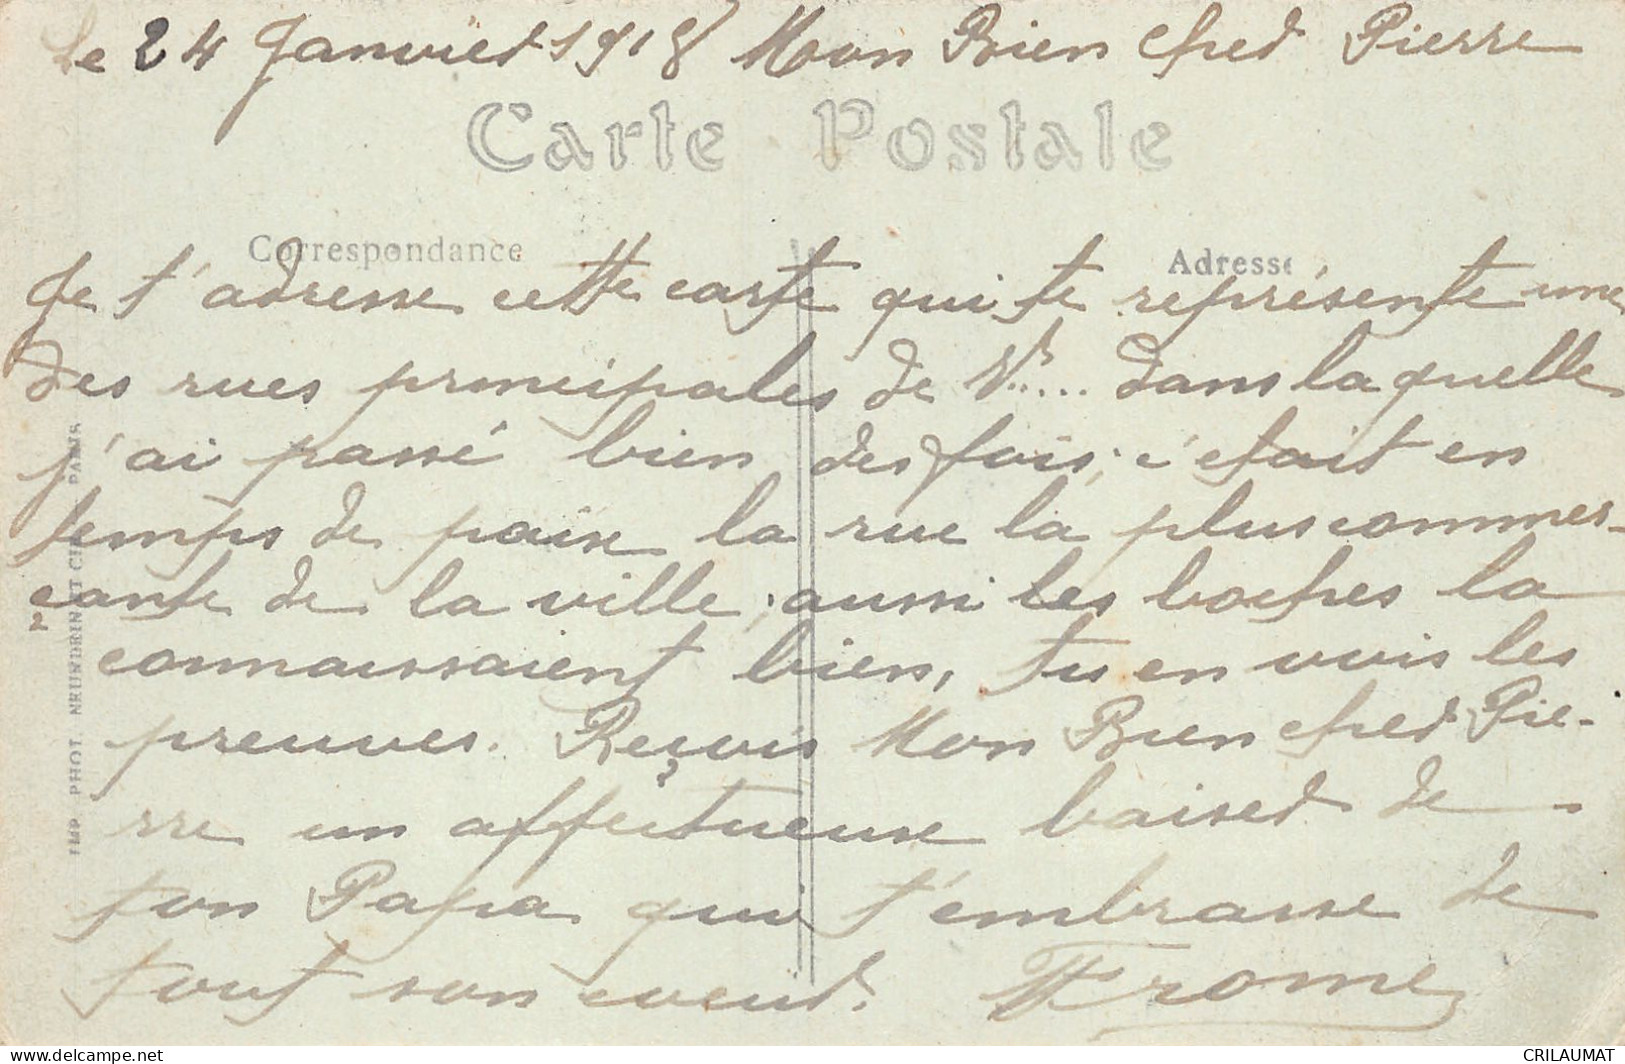 Le 24 Janvier 1918 Mon Bien cher Pierre
Carte Postale
Correspondance
Adresse
Je t'adresse cette carte qui te représente une
des rues principales de V..... dans laquelle
j'ai passé bien des fois; c'était en
temps de paix la rue la plus commer-
çante de la ville; aussi les boches la
connaissaient bien, tu en vois les
preuves. Reçois Mon Bien cher Pie-
rre un affectueux baiser de
ton Papa qui t'embrasse de
tout son coeur.
IMP. PHOT. NEURDEIN ET CIE PARIS
delcampe.net
CRILAUMAT